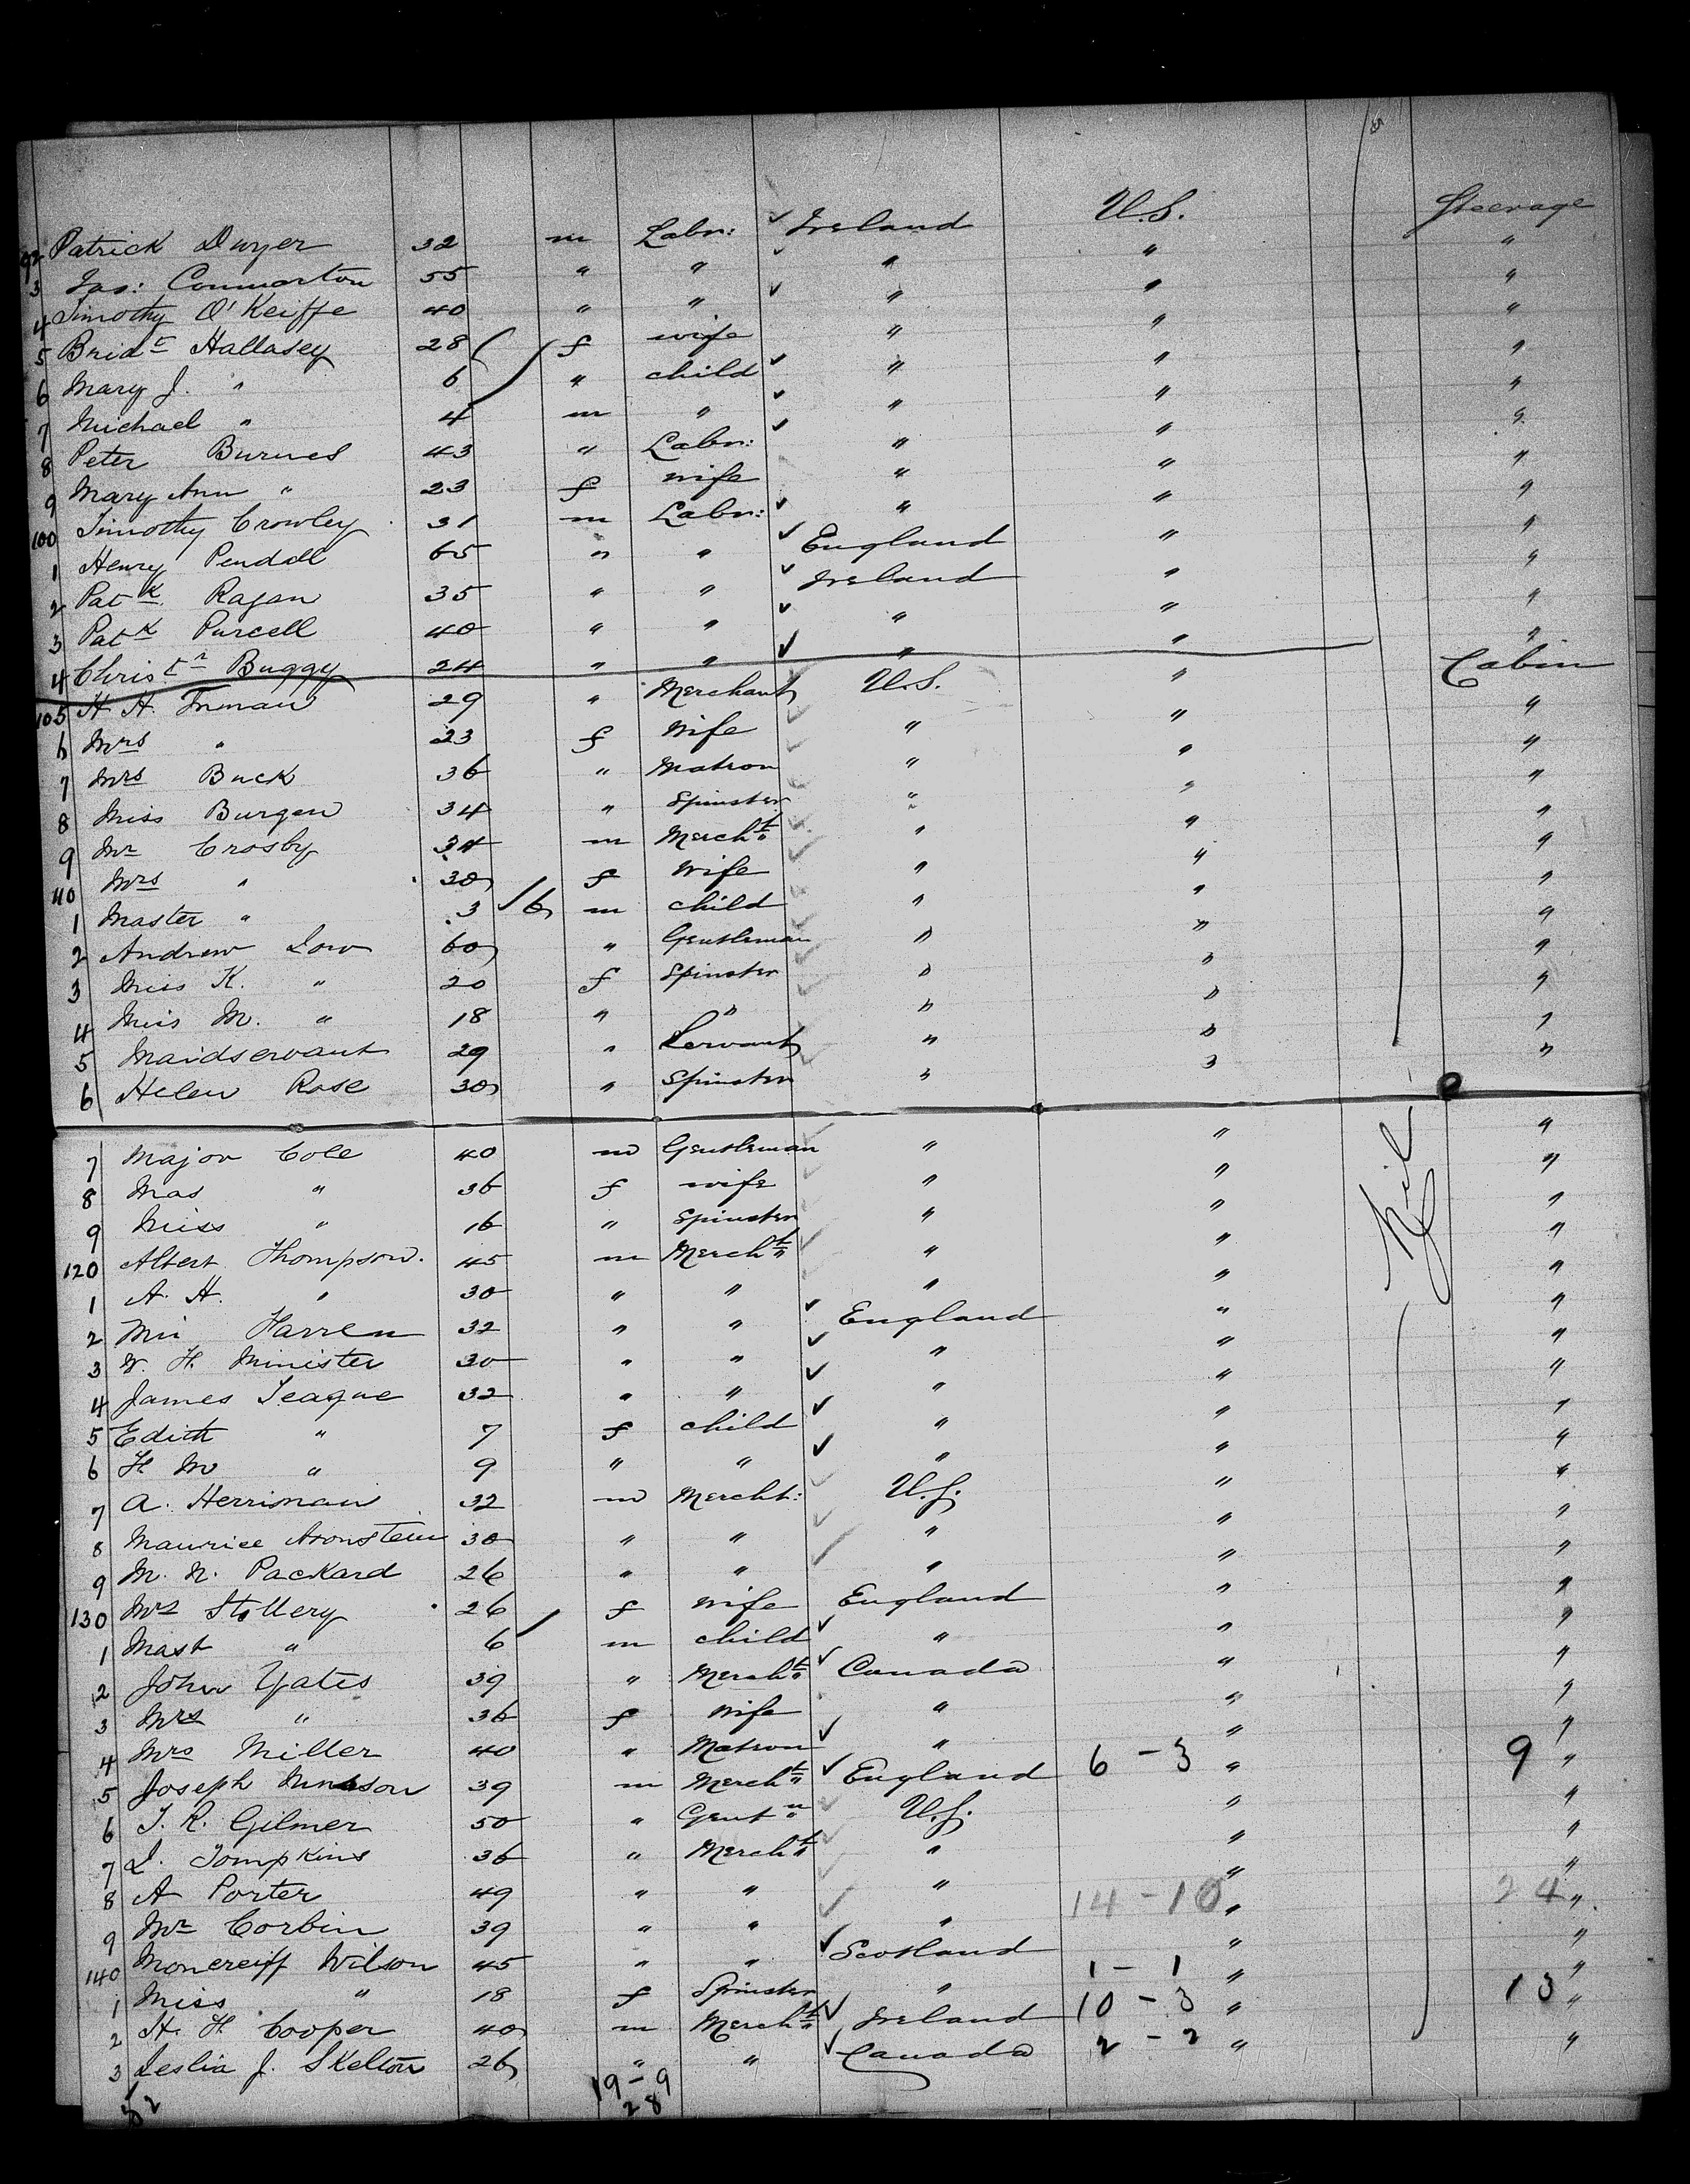 92 Patrick Dwyer 32 m Labr: ✓ Ireland U.S. Steerage
3 Jas: Connorton 55 " " ✓ " " "
4 Timothy O'Keiffe 40 " " ✓ " " "
5 Bridt Hallasey 28 f wife " " "
6 Mary J. " 6 " child ✓ " " "
7 Michael " 4 m " ✓ " " "
8 Peter Burnes 43 " Labr: ✓ " " "
9 Mary Ann " 23 f wife " " "
100 Timothy Crowley 31 m Labr: ✓ " " "
1 Henry Pendall 65 " " ✓ England " "
2 Patk Ragan 35 " " ✓ Ireland " "
3 Patk Purcell 40 " " ✓ " " "
4 Christr Buggy 24 " " ✓ " " "
105 H. H. Inman 29 " Merchant ✓ U.S. " Cabin
6 Mrs " 23 f Wife ✓ " " "
7 Mrs Buck 36 " Matron ✓ " " "
8 Miss Burgen 34 " Spinster ✓ " " "
9 Mr Crosby 34 m Mercht ✓ " " "
110 Mrs " 30 f Wife ✓ " " "
1 Master " 3 /6 m child ✓ " " "
2 Andrew Low 60 " Gentleman ✓ " " "
3 Miss K. " 20 f Spinster ✓ " " "
4 Miss M. " 18 " " ✓ " " "
5 Maidservant 29 " Servant ✓ " " "
6 Helen Rose 30 " Spinster ✓ " " "
7 Major Cole 40 m Gentleman ✓ " " "
8 Mrs " 36 f wife ✓ " " "
9 Miss " 16 " Spinster ✓ " " "
120 Albert Thompson. 45 m Mercht ✓ " " "
1 A. H. " 30 " " " " "
2 Harren 32 " " ✓ England " "
3 H. Minister 30 " " ✓ " " "
4 James Teague 32 " " ✓ " " "
5 Edith " 7 f child ✓ " " "
6 H M " 9 " " ✓ " " "
7 A. Herriman 32 m Mercht: ✓ U.S. " "
8 Maurice Aronstein 30 " " ✓ " " "
9 M. N. Packard 26 " " ✓ " " "
130 Mrs Stollery 26 f Wife England " "
1 Mast " 6 m child ✓ " " "
2 John Yates 39 " Mercht ✓ Canada " "
3 Mrs " 36 f wife " " "
4 Mrs Miller 40 " Matron ✓ " " "
5 Joseph 39 m Mercht ✓ England 6 - 3 " 9 "
6 T. R. Gilmer 50 " Gentn ✓ U.S. " "
7 Tompkins 36 " Mercht ✓ " " "
8 A Porter 49 " " ✓ " " "
9 Mr Corbin 39 " " ✓ " 14 - 10 " 24 "
140 Moncreiff Wilson 45 " " ✓ Scotland " "
1 Miss " 18 f Spinster " 1 - 1 " "
2 H. H. Cooper 40 m Mercht ✓ Ireland 10 - 3 " 13 "
3 Leslia J. Skelton 26 " " ✓ Canada 2 - 2 " "
52 19 - 9
28